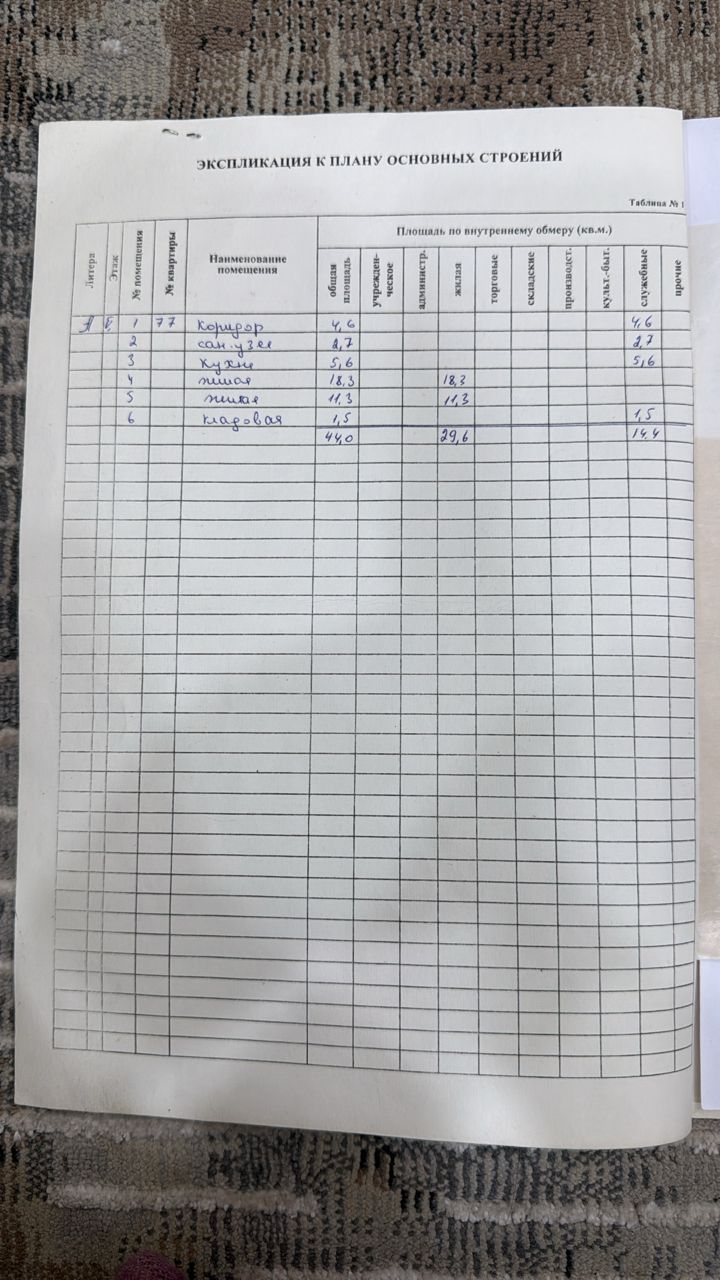 ЭКСПЛИКАЦИЯ К ПЛАНУ ОСНОВНЫХ СТРОЕНИЙ
Таблица № 1
Литера Этаж № помещения № квартиры Наименование помещения Площадь по внутреннему обмеру (кв.м.)
общая площадь учрежден-ческое администр. жилая торговые складские производст. культ.-быт. служебные прочие
А 1 77 коридор 4,6 4,6
2 сан.узел 2,7 2,7
3 кухня 5,6 5,6
4 жилая 18,3 18,3
5 жилая 11,3 11,3
6 кладовая 1,5 1,5
44,0 29,6 14,4